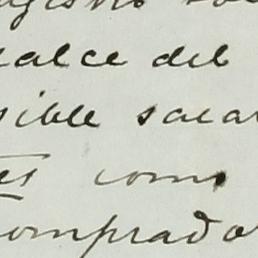 alce del
sible sacar
es como
comprado